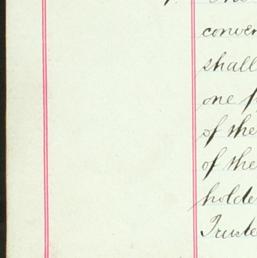 conven
shall
one f
of the
of the
holde
Truste